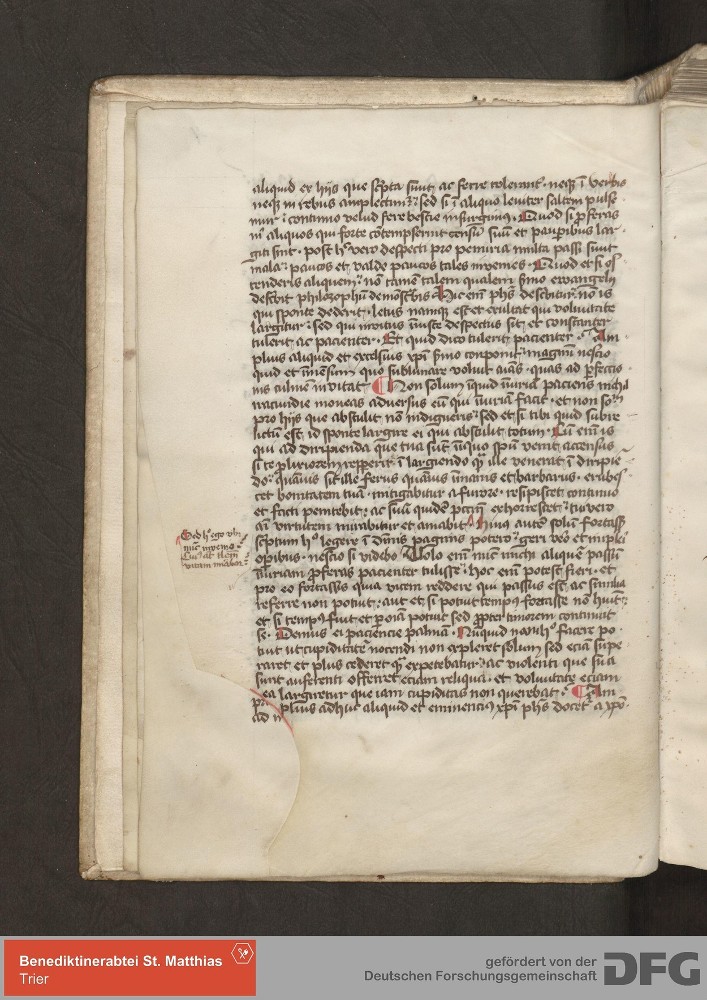 aliquid ex hijs que scpta sunt, ac ferre tolerant· neqȝ ī verbis
neqȝ in rebus amplectimur sed si ī aliquo leuiter saltem pulse
mur ī continuo velud fere bestie insurgimus· Quod si pferas
m aliquos qui forte cōtempserint censū suū et paupibus lar
giti sint· post h vero despecti pro penuria multa passi sunt
mala paucos et valde paucos tales inuenies· Quod et si os
tenderis aliquem nō tamē talem qualem smo ewangelij
describit philozophū demōstbis Hic enī phs describitur nō is
qui sponte dederit· letus namqȝ est et exultat qui voluntate
largitur sed qui inuitus iniuste despectus sit et constanter
tulerit ac pacienter· Et quid dico tulerit pacienter· Am
plius aliquid et excelsius xpi smo componit magnū nescio
quid et īmēsum quo sublimare voluit aīas· quas ad pfectio
nis culmē inuitat Non solum īquid iniuriā paciens nichil
iracundie moueas aduersus eū qui iniuriā facit· et non solū
pro hijs que abstulit nō indigneris sed et si tibi quid subre
lictū est, id sponte largire ei qui abstulit totum· Cū enī is
qui ad diripienda que tua sunt iniquo spū venit accensus
si te pluriorem reppererit ī largiendo qȝ ille venerat ī diripiē
do· quāuis sit ille ferus quāuis inmanis et barbarus· erubes
cet bonitatem tuā· mitigabitur a furore· resipiscet continuo
et facti penitebit ac suā quidē pctīm exhorrescet tu vero
aī virtutem mirabitur et amabit Huius autē solū fortassis
scptum h legere ī diuīs paginis potero· geri vō et impleri
opibus· nescio si videbo Volo enī nūc michi aliquē passū
iniuriam pferas pacienter tulisse hoc enī potest fieri· et
pro eo fortassis quia vicem reddere qui passus est ac similia
referre non potuit aut et si potuit tempus fortasse nō huit
et si tempus fuit et pōia potuit sed ppter timorem continuit
se· Demus ei paciencie palmā· Nūquid nauh facere po
tuit ut cupiditatē nocendi non expleret solum sed eciā supe
raret et plus cederet qȝ expetebatur ac violenti que sua
sunt auferenti offerret eciam reliqua· et voluntate eciam
ea largiretur que iam cupiditas non querebat· Am
plius adhuc aliquid et eminencius xpi phs docet a xpo·
ad
Sed h ego vbi
nūc inueniā
vitam
Benediktinerabtei St. Matthias
Trier
gefördert von der
Deutschen Forschungsgemeinschaft
DFG